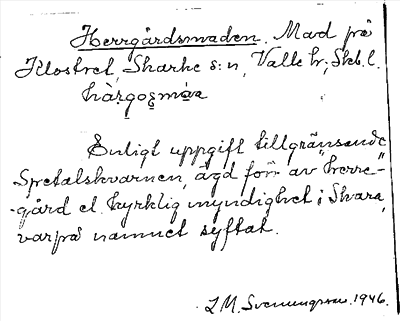 Herrgårdsmaden. Mad på
Klostret, Skarke s:n, Valle hr, Skb. l.
hàrgosmáa
Enligt uppgift tillgränsande
Spetalskvarnen, ägd förr av "herre-"
-gård el. kyrklig myndighet i Skara,
varpå namnet syftat.
I. M. Svenungsson 1946.